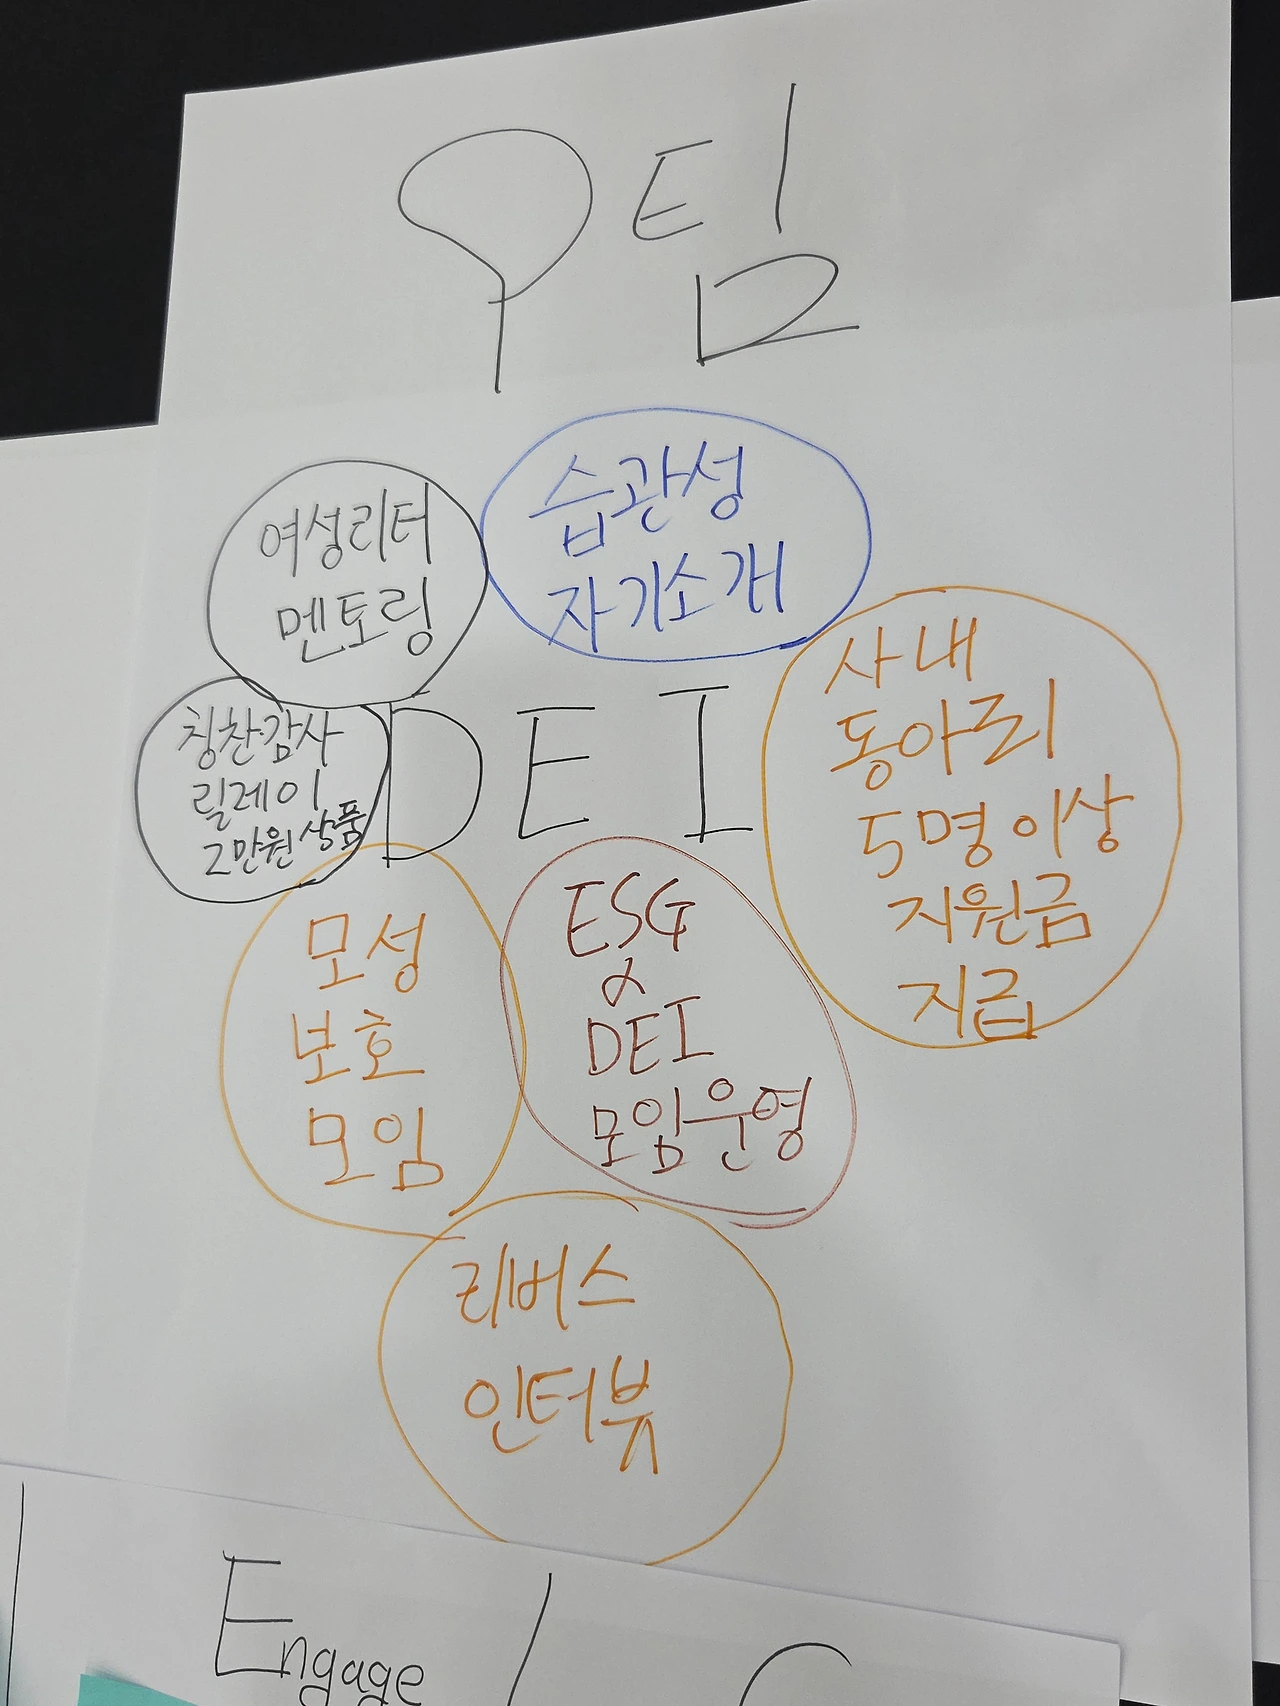 9팀
습관성
자기소개
여성리더
멘토링
사내
동아리
5명 이상
지원금
지급
칭찬·감사
릴레이
2만원 상품
DEI
모성
보호
모임
ESG
&
DEI
모임운영
리버스
인터뷰
Engage